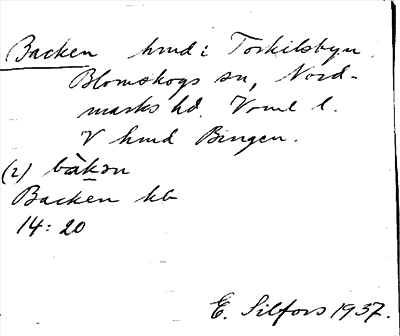 Backen hmd i Torkilsbyn
Blomskogs sn, Nord-
marks hd. Vrml l.
V hmd Bingen.
(2) bàkən
Backen kb
14:20
E. Silfors 1937.